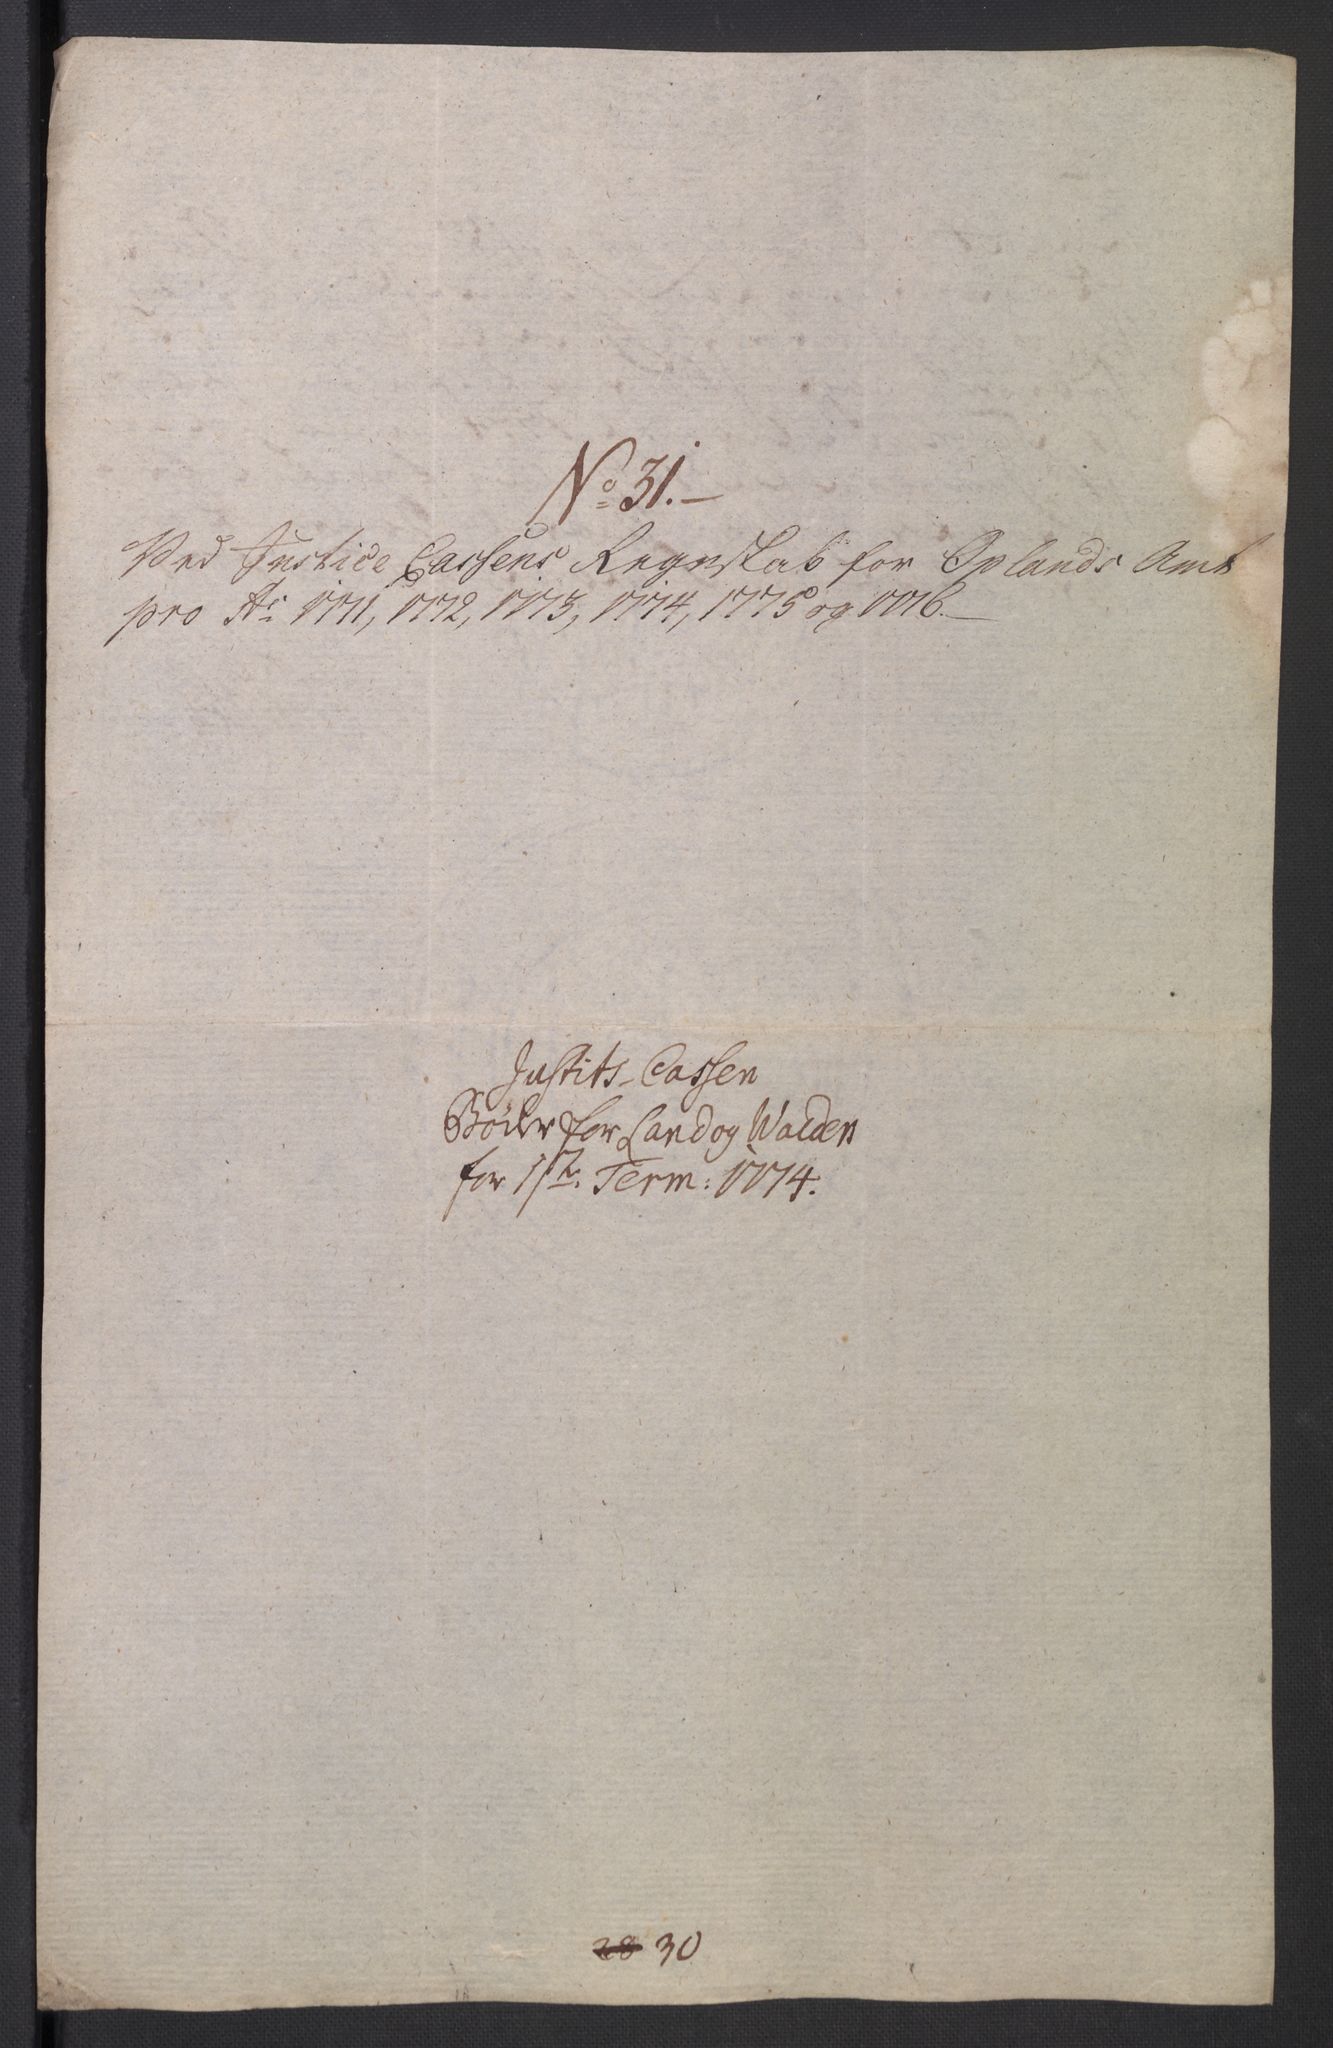 No 31.-
Ved Justice Cassens Regnskab for Oplands Amt
pro Ao 1771, 1772, 1773, 1774, 1775 og 1776.-
Justits-Cassen
Böder for Land og Walders
for 1ste Term: 1774.
28 30